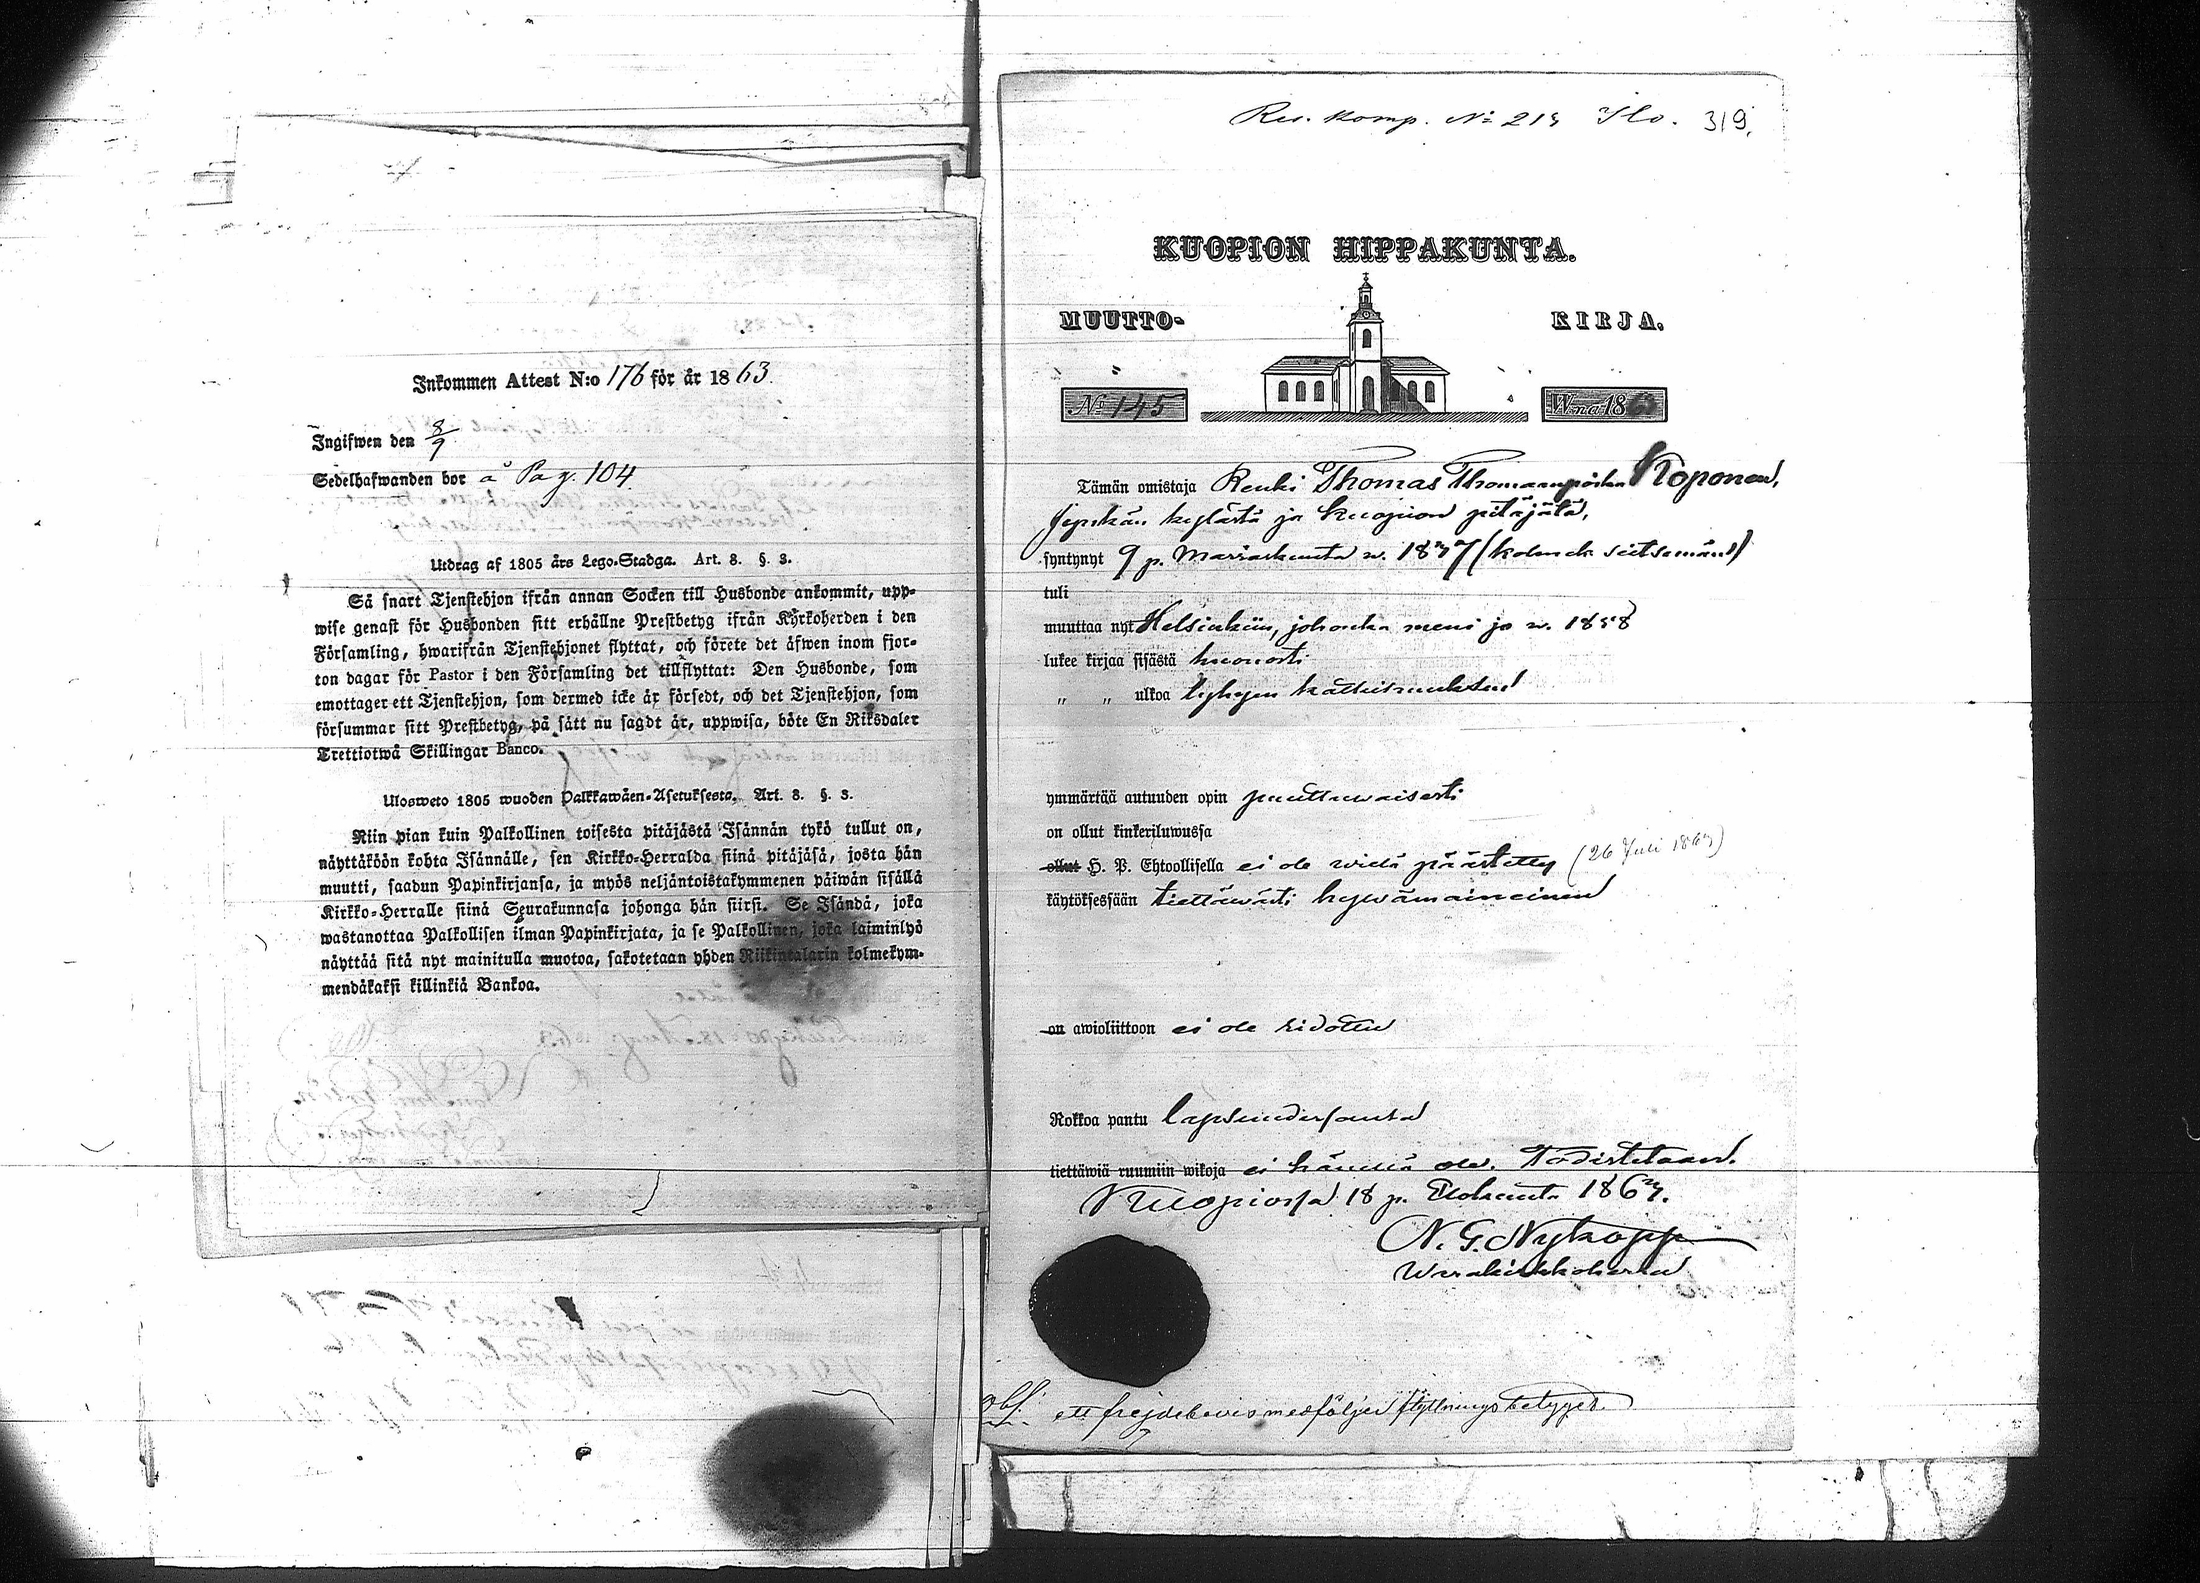 Inkommen Attest N:o 176 för år 1863.
Ingifwen den 8/9
Sedelhafwanden bor å Pag. 104
Utdrag af 1805 års Lego-Stadga. Art. 8. §. 3.
Så snart Tjenstehjon ifrån annan Socken till Husbonde ankommit, upp-
wise genast för Husbonden sitt erhållne Prestbetyg ifrån Kyrkoherden i den
Församling, hwarifrån Tjenstehjonet flyttat, och förete det äfwen inom fjor-
ton dagar för Pastor i den Församling det tillflyttat: Den Husbonde, som
emottager ett Tjenstehjon, som dermed icke är försedt, och det Tjenstehjon, som
försummar sitt Prestbetyg, på sätt nu sagdt är, uppwisa, böte En Riksdaler
Trettiotwå Skillingar Banco.
Ulosweto 1805 wuoden Palkkawäen-Asetuksesta. Art. 8. §. 3.
Niin pian kuin Palkollinen toisesta pitäjästä Isännän tykö tullut on,
näyttäköön kohta Isännälle, sen Kirkko-Herralda siinä pitäjäsä, josta hän
muutti, saadun Papinkirjansa, ja myös neljäntoistakymmenen päiwän sisällä
Kirkko-Herralle siinä Seurakunnasa johonga hän siirsi. Se Isändä, joka
wastanottaa Palkollisen ilman Papinkirjata, ja se Palkollinen, joka laiminlyö
näyttää sitä nyt mainitulla muotoa, sakotetaan yhden Riikintalarin kolmekym-
mendäkaksi killinkiä Bankoa.
Res. Komp. No 219 319.
KUOPION HIPPAKUNTA.
MUUTTO- KIRJA.
No 145 W:na 1863
Tämän omistaja Renki Thomas Thomaanpoika Koponen,
kylästä ja Kuopion pitäjätä,
syntynyt 9 p. Marraskuuta w. 1837 (kolmek seitsemän)
tuli
muuttaa nyt Helsinkiin, johonka meni jo w. 1858
lukee kirjaa sisästä huonosti
„ „ ulkoa lyhyen katkismuksen
ymmärtää autuuden opin puuttuwaisesti
on ollut kinkeriluwussa
ollut H. P. Ehtoollisella ei ole wielä päästetty (26 Juli 1863)
käytöksessään tiettäwästi hywämaineinen
on awioliittoon ei ole sidottu
Rokkoa pantu lapsuudessansa
tiettäwiä ruumiin wikoja ei hänessä ole. Todistetaan.
Kuopiossa 18 p. Elokuuta 1863.
N. G. Nykopp
Warakirkkoherra
obs. ett frejdebevis medföljer flyttningsbetyget.